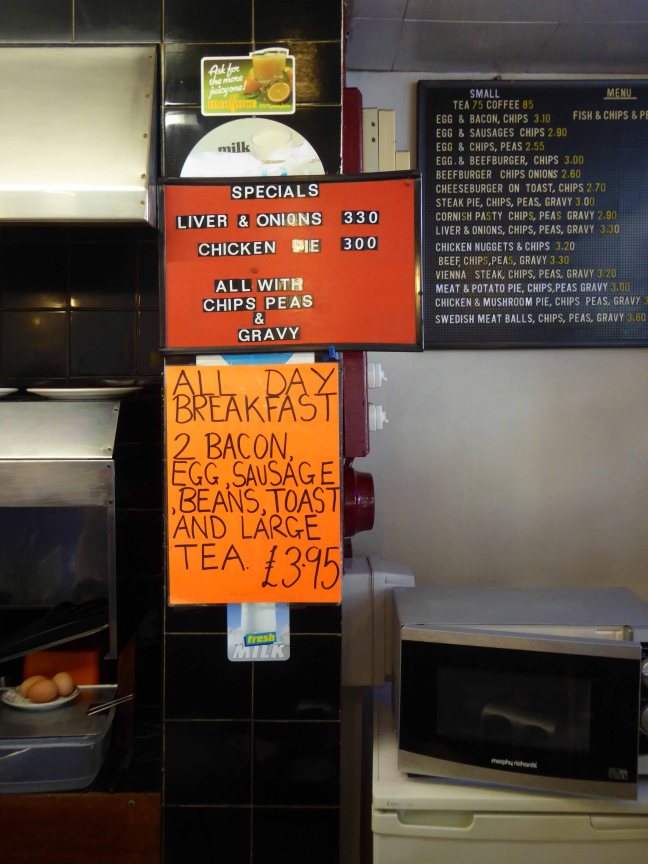 Ask for
the more
juicy one!
milk
SPECIALS
LIVER & ONIONS 330
CHICKEN IE 300
ALL WITH
CHIPS PEAS
&
GRAVY
ALL DAY
BREAKFAST
2 BACON,
EGG, SAUSAGE
,BEANS, TOAST
AND LARGE
TEA. £3.95
fresh
MILK
SMALL
TEA 75 COFFEE 85
EGG & BACON, CHIPS 3.10
EGG & SAUSAGES CHIPS 2.90
EGG & CHIPS, PEAS 2.55
EGG.& BEEFBURGER, CHIPS 3.00
BEEFBURGER CHIPS ONIONS 2.60
CHEESEBURGER ON TOAST, CHIPS 2.70
STEAK PIE, CHIPS, PEAS, GRAVY 3.00
CORNISH PASTY CHIPS, PEAS GRAVY 2.90
LIVER & ONIONS, CHIPS, PEAS, GRAVY 3.30
CHICKEN NUGGETS & CHIPS 3.20
BEEF, CHIPS, PEAS, GRAVY 3.30
VIENNA STEAK, CHIPS, PEAS, GRAVY 3.20
MEAT & POTATO PIE, CHIPS, PEAS GRAVY 3.00
CHICKEN & MUSHROOM PIE, CHIPS PEAS, GRAVY 3
SWEDISH MEAT BALLS, CHIPS, PEAS, GRAVY 3.60
MENU
FISH & CHIPS & PE
morphy richards